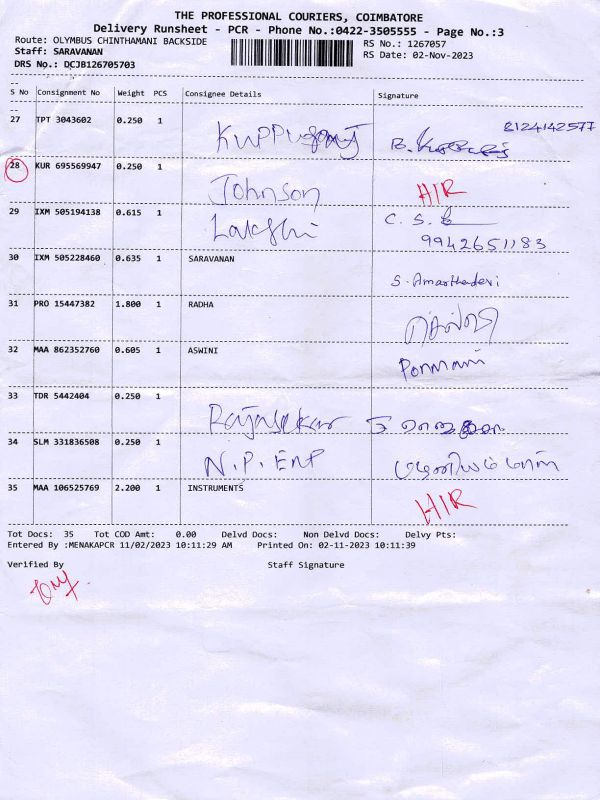 THE PROFESSIONAL COURIERS, COIMBATORE
Delivery Runsheet - PCR - Phone No.:0422-3505555 - Page No.:3
Route: OLYMBUS CHINTHAMANI BACKSIDE RS No.: 1267057
Staff: SARAVANAN RS Date: 02-Nov-2023
DRS No.: DCJB126705703
S No Consignment No Weight PCS Consignee Details Signature
27 TPT 3043602 0.250 1 8124142577
28 KUR 695569947 0.250 1 Johnson H/R
29 IXM 505194138 0.615 1 Lakshi C. S.
9942651183
30 IXM 505228460 0.635 1 SARAVANAN
S. Amarthadevi
31 PRO 15447382 1.800 1 RADHA
32 MAA 862352760 0.605 1 ASWINI Ponmani
33 TDR 5442404 0.250 1 Rajasekar
34 SLM 331836508 0.250 1 N.P. ENP
35 MAA 106525769 2.200 1 INSTRUMENTS H/R
Tot Docs: 35 Tot COD Amt: 0.00 Delvd Docs: Non Delvd Docs: Delvy Pts:
Entered By :MENAKAPCR 11/02/2023 10:11:29 AM Printed On: 02-11-2023 10:11:39
Verified By Staff Signature